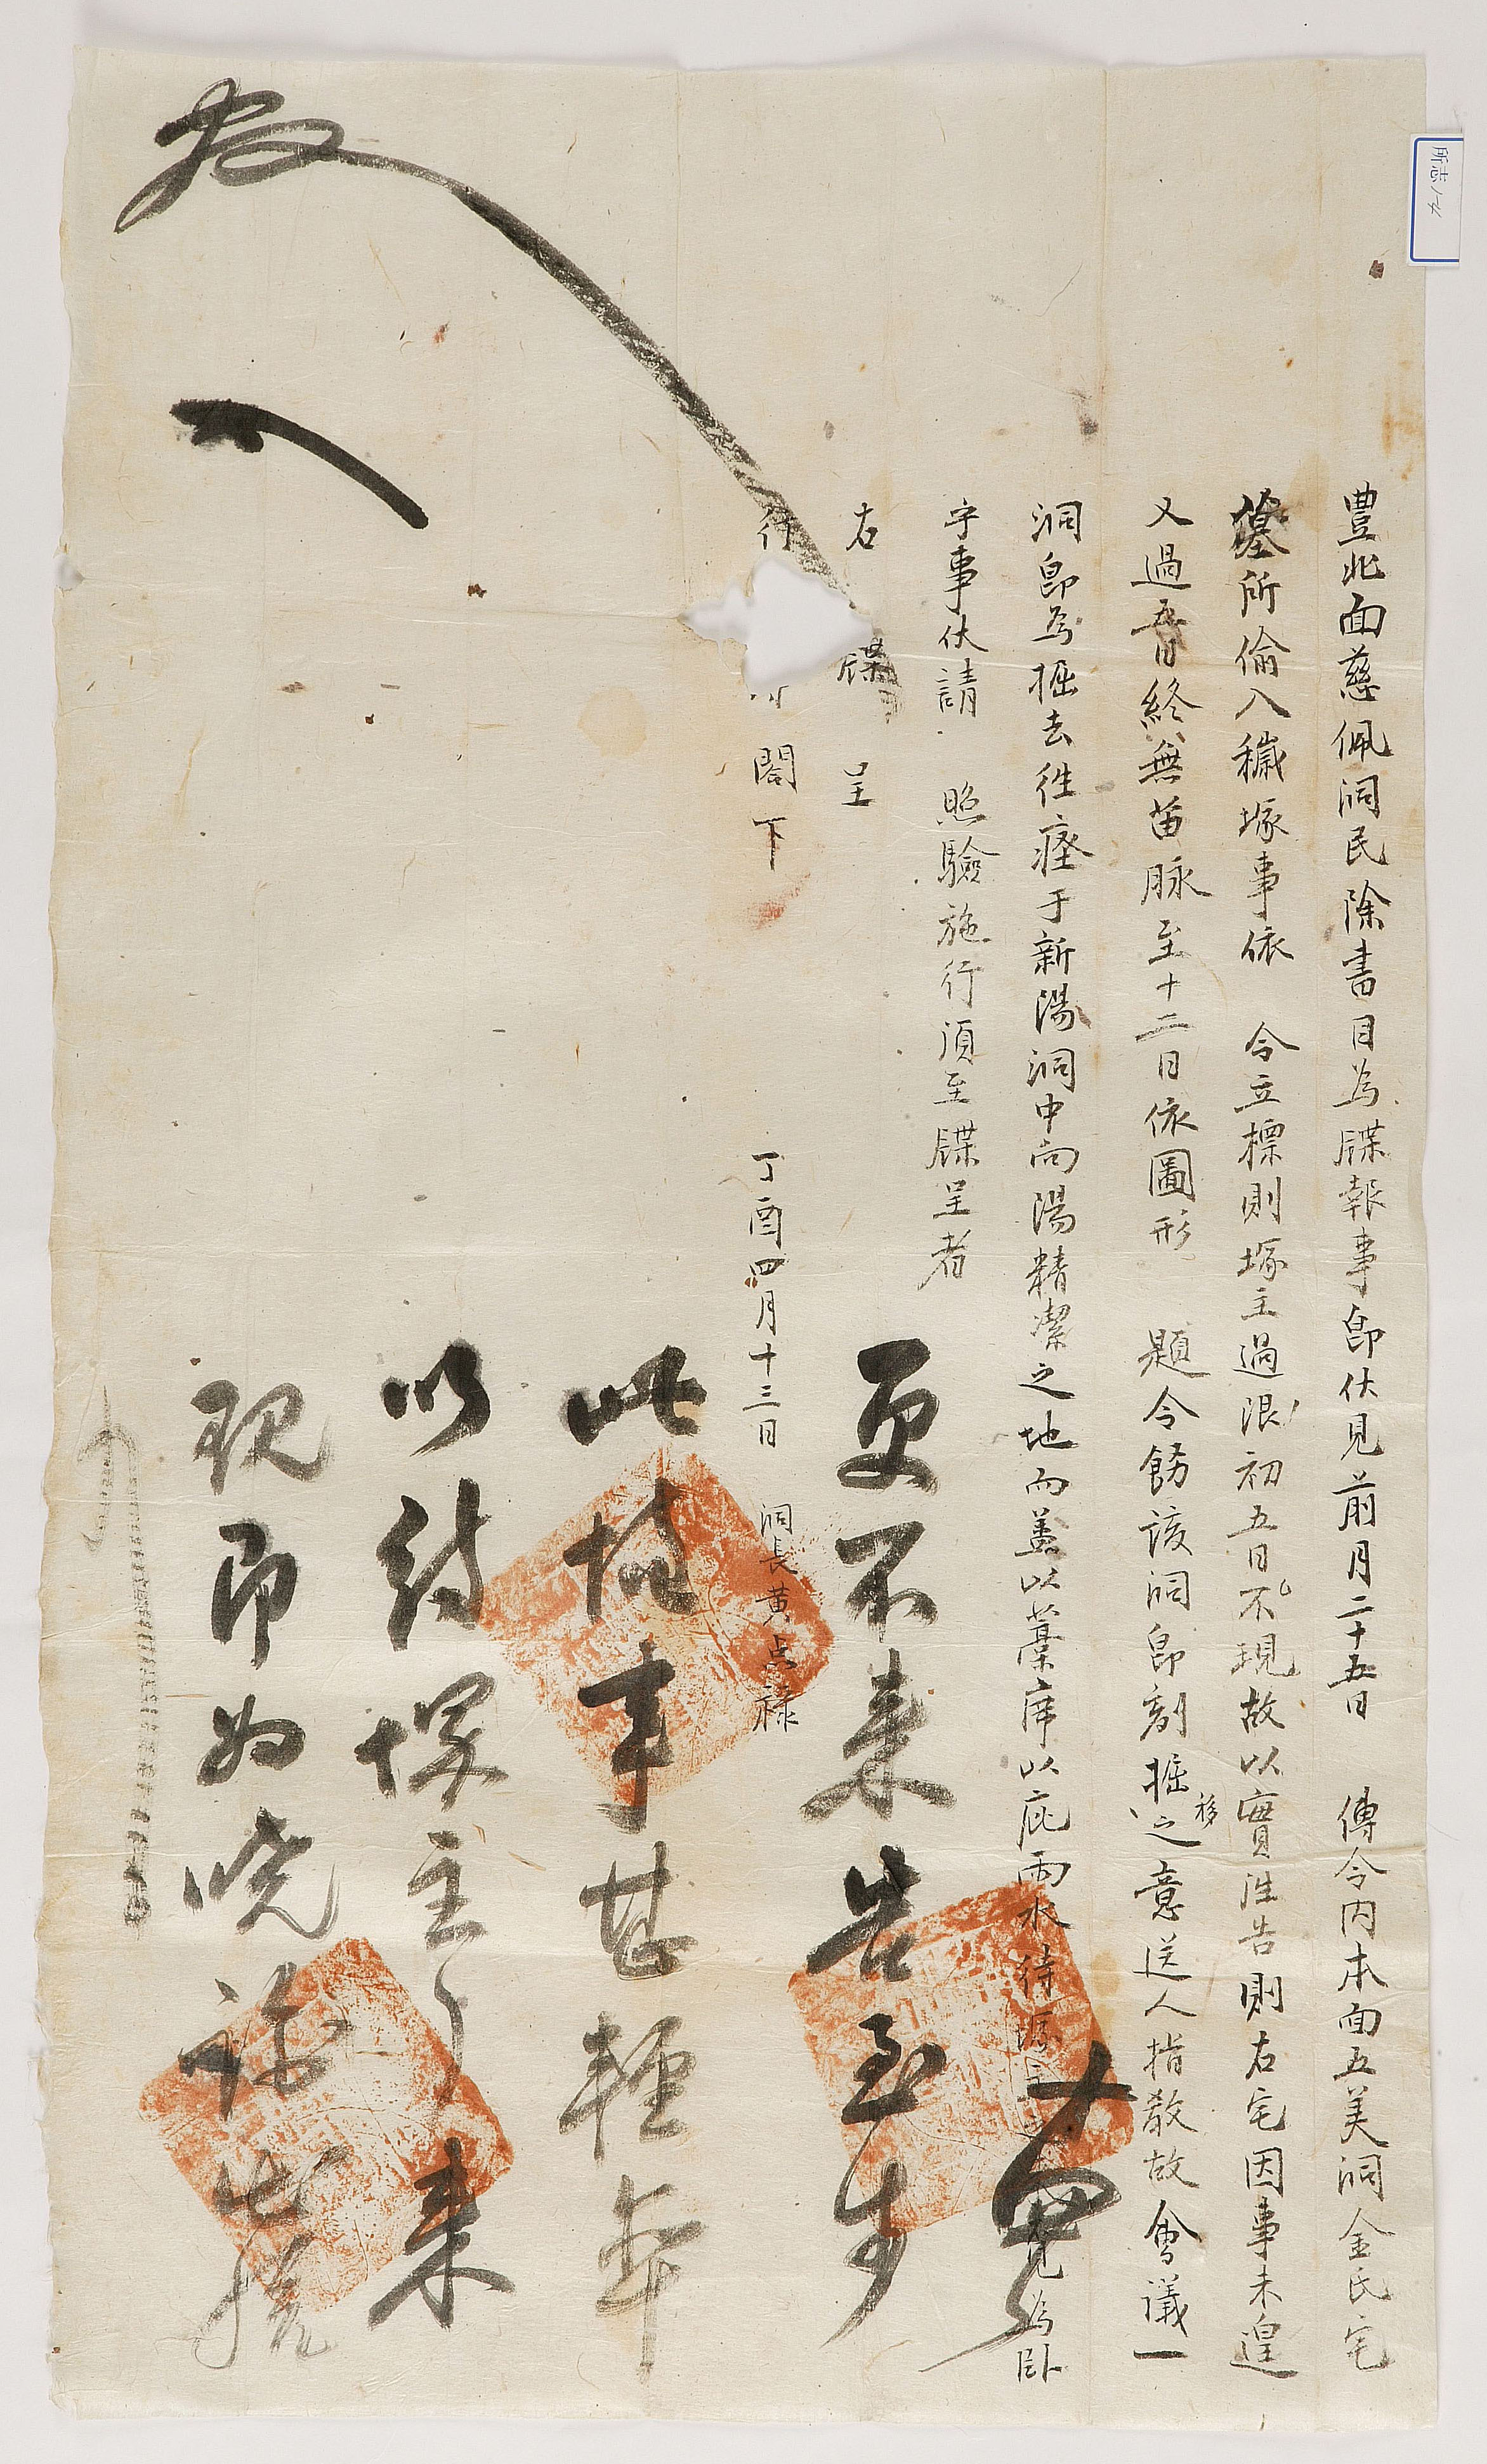 豊北面慈佩洞民除書目爲牒報事卽伏見前月二十五日 傳令內本面五美洞金氏宅
墓所偸入穢塚事依 令立標則塚主過限初五日不現故以實往告則右宅因事未遑
又過五日終無苗脉至十二日依圖形 題令飭該洞卽刻掘移之意送人指教故會議一
洞卽爲掘去徃瘞于新陽洞中向陽精潔之地而蓋以藁席以庇雨水待塚主之 覓爲臥
乎事伏請 照驗施行須至牒呈者
右 牒 呈
行 閤下
丁酉四月十三日 洞長黃点祿
更不來告
此塚事甚輕
以待塚主 來
現卽爲曉諭
所志